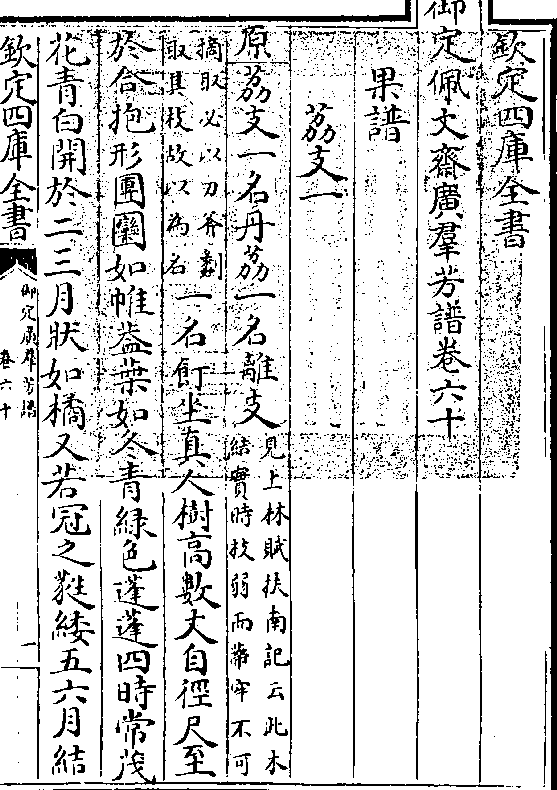 欽定四庫全書
御定佩文齋廣羣芳譜卷六十
果譜
荔支一
原荔支一名丹荔一名離支見上林賦扶南記云此木
結實時枝弱而蔕牢不可
摘取必以刀斧劙
取其枝故以為名一名飣坐真人樹高數丈自徑尺至
於合抱形團圞如帷蓋葉如冬青緑色蓬蓬四時常茂
花青白開於二三月狀如橘又若冠之蕤緌五六月結
欽定四庫全書
御定廣羣芳譜
卷六十
一